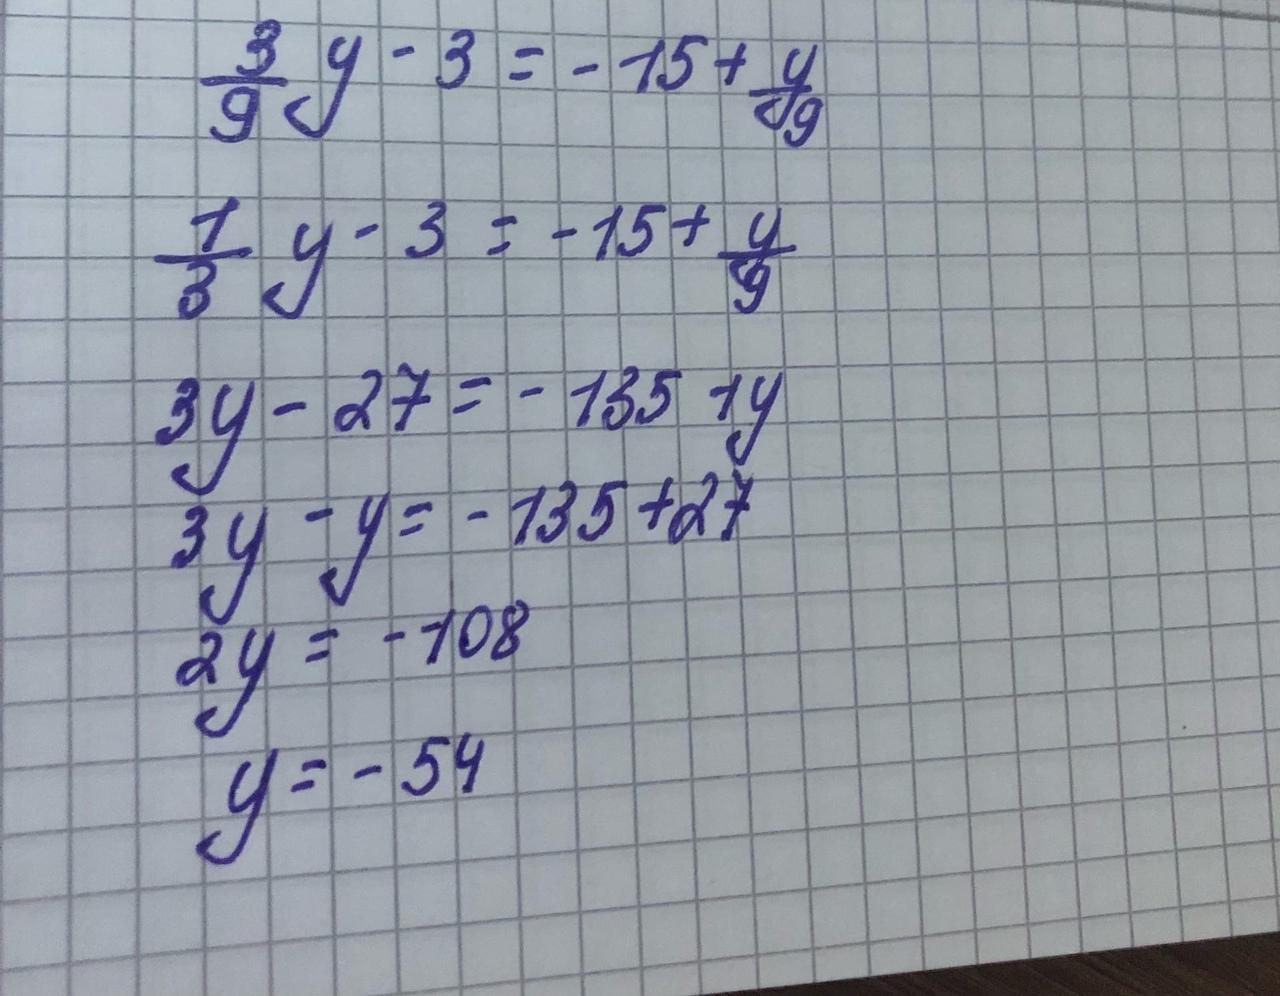 3/9 y - 3 = - 15 + y/9
1/3 y - 3 = - 15 + y/9
3y - 27 = - 135 + y
3y - y = - 135 + 27
2y = - 108
y = - 54